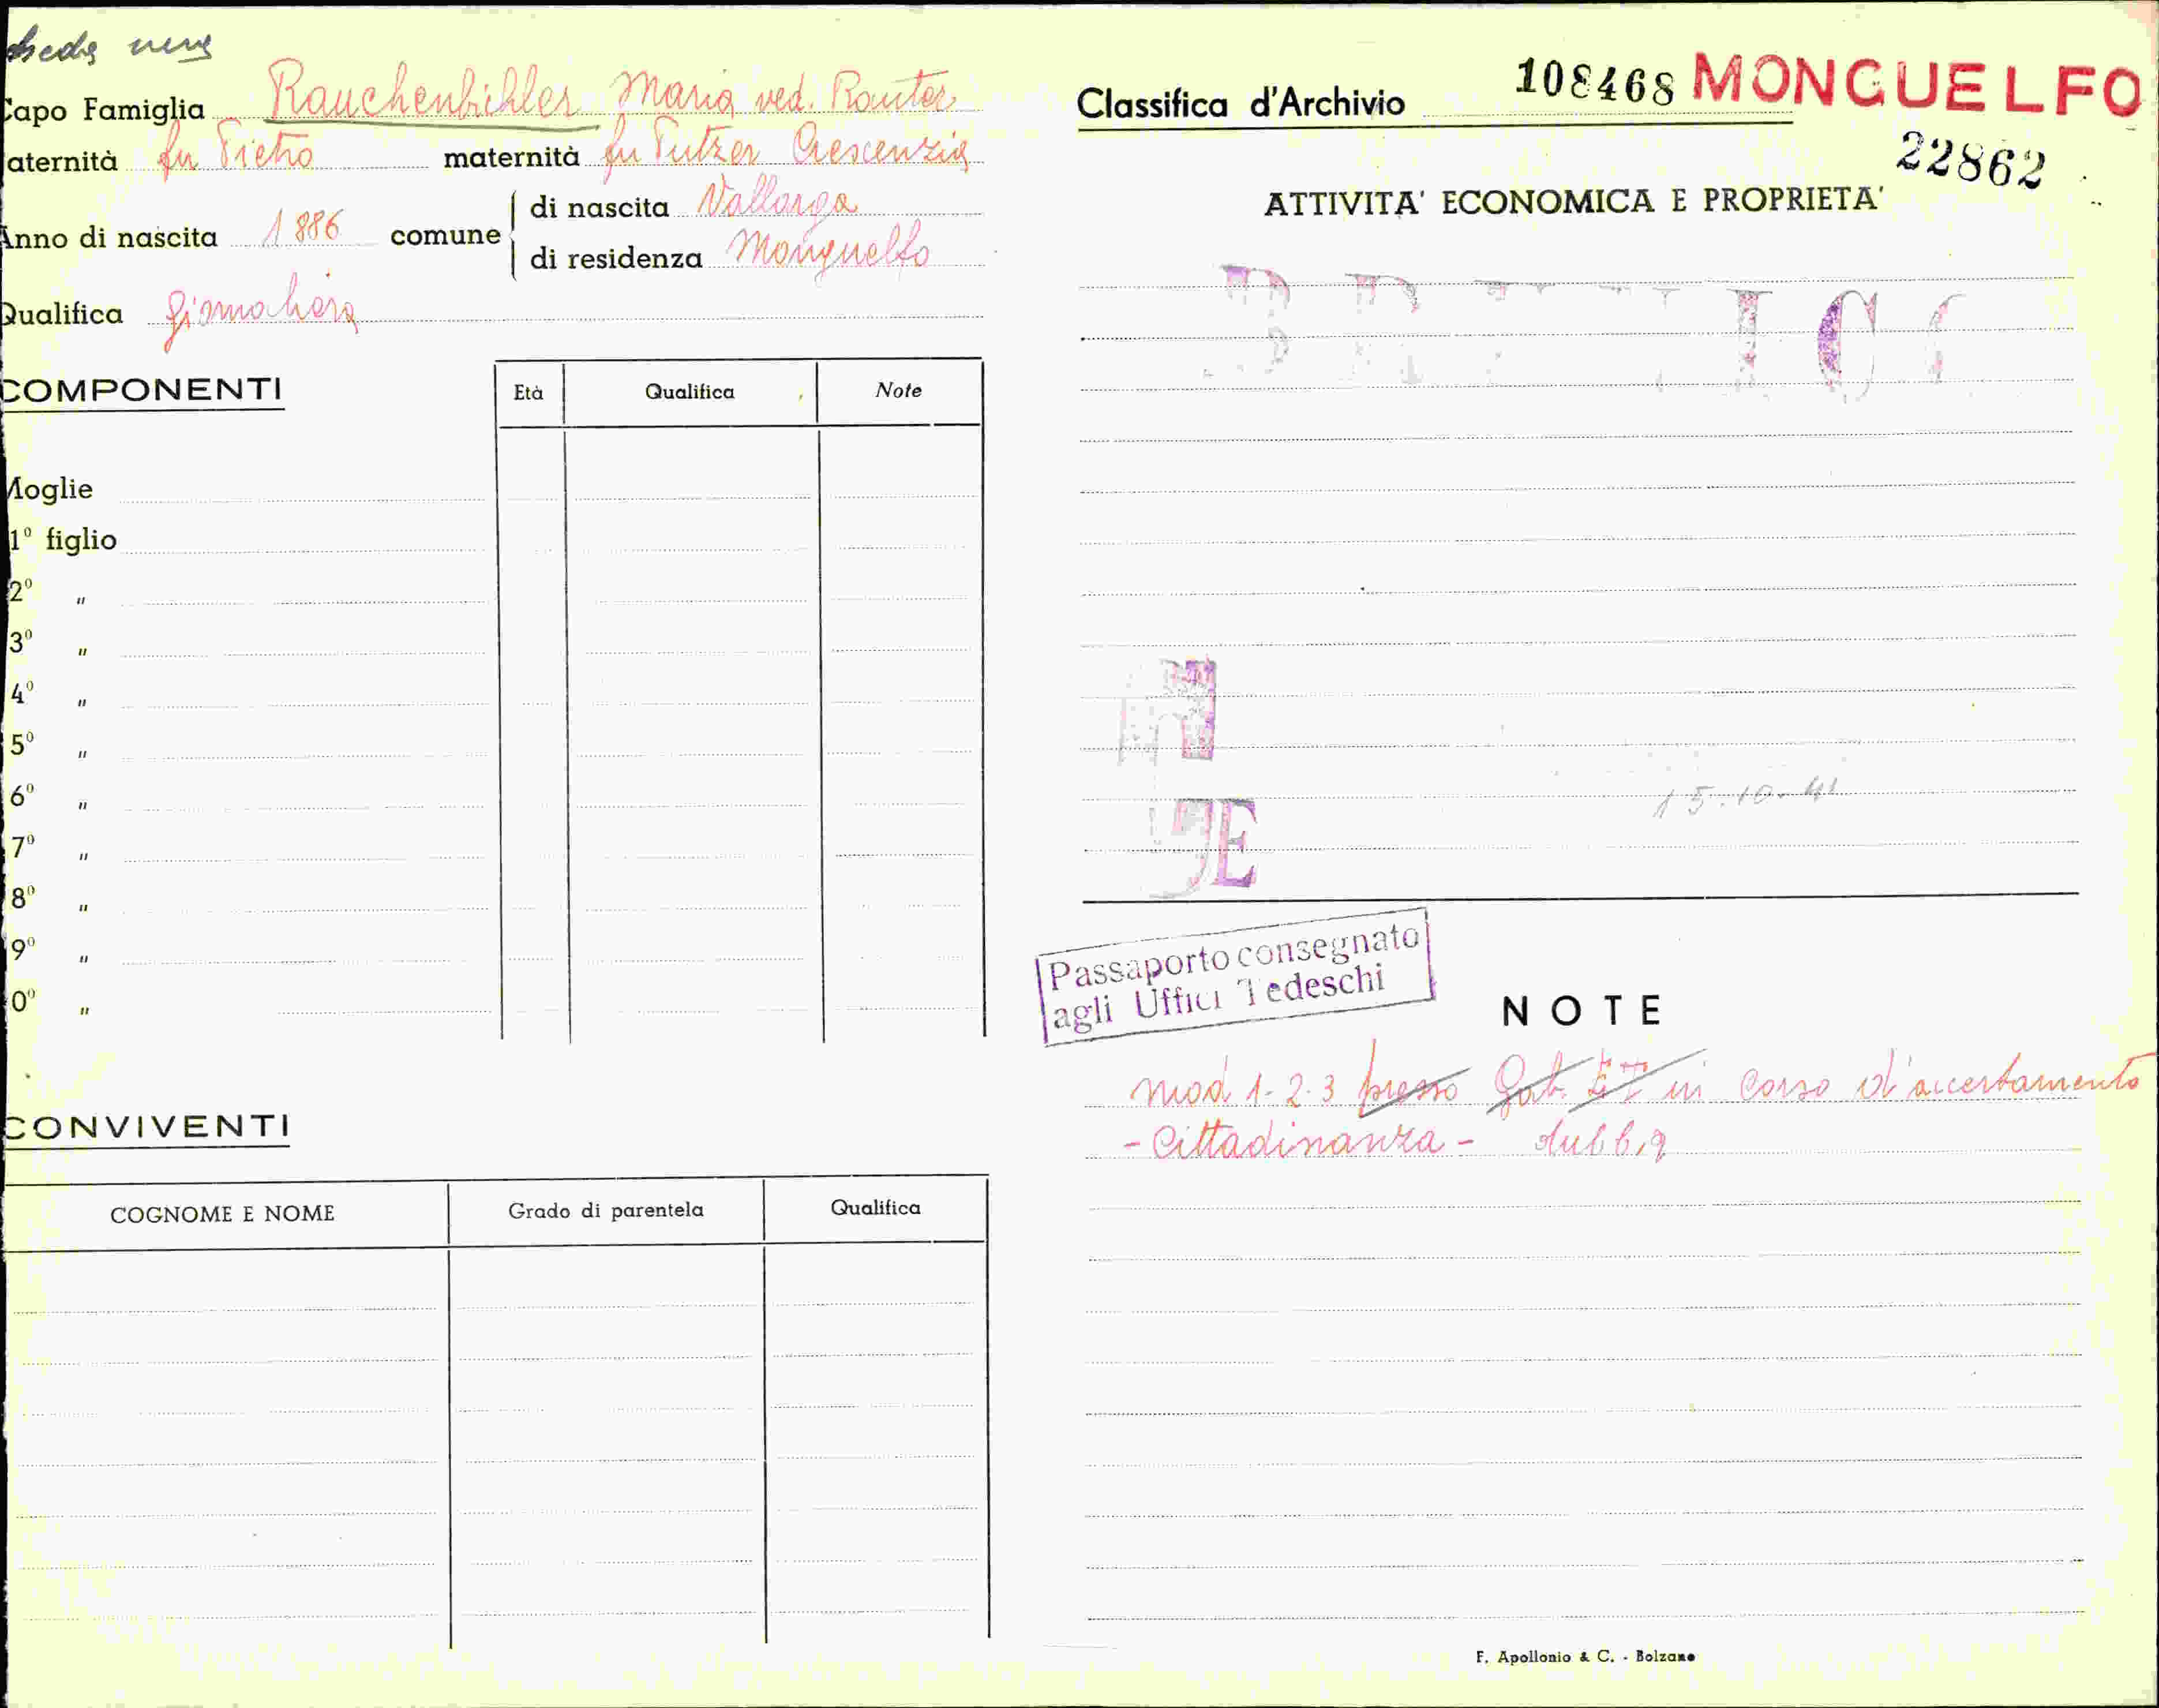 Capo Famiglia Rauchenbichler Maria ved. Rauter
aternità fu Pietro maternità fu Putzer Crescenzia
Anno di nascita 1886 comune di nascita Vallarga
di residenza Monguelfo
Qualifica giornaliera
COMPONENTI
Età Qualifica Note
Moglie
1º figlio
2º "
3º "
4º "
5º "
6º "
7º "
8º "
9º "
0º "
CONVIVENTI
COGNOME E NOME Grado di parentela Qualifica
Classifica d'Archivio 108468 MONGUELFO
22862
ATTIVITA' ECONOMICA E PROPRIETA'
15.10.41
Passaporto consegnato
agli Uffici Tedeschi
NOTE
Mod 1-2-3 presso Gab. in corso d'accertamento
- Cittadinanza - dubbia
F. Apollonio & C. - Bolzano